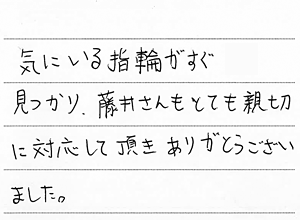 気にいる指輪がすぐ
見つかり、藤井さんもとても親切
に対応して頂きありがとうござい
ました。